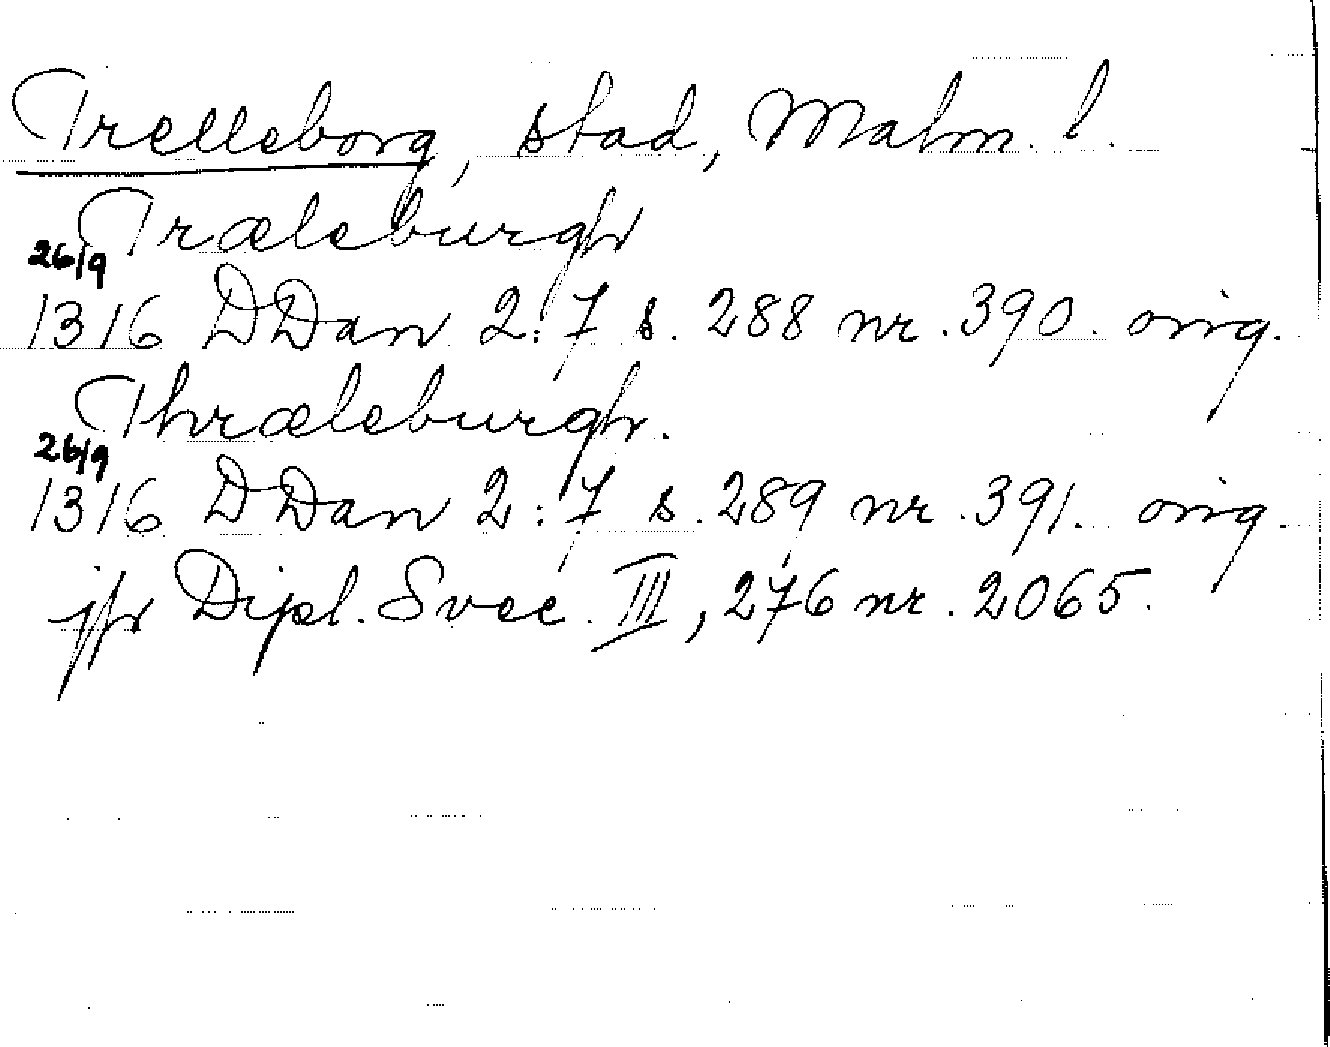 Trelleborg, stad, Malm. l.
Træleburgh
26/9
1316 DDan 2:7 s. 288 nr. 390. orig.
Thræleburgh.
26/9
1316 DDan 2:7 s. 289 nr. 391. orig.
jfr Dipl. Svec. III, 276 nr. 2065.